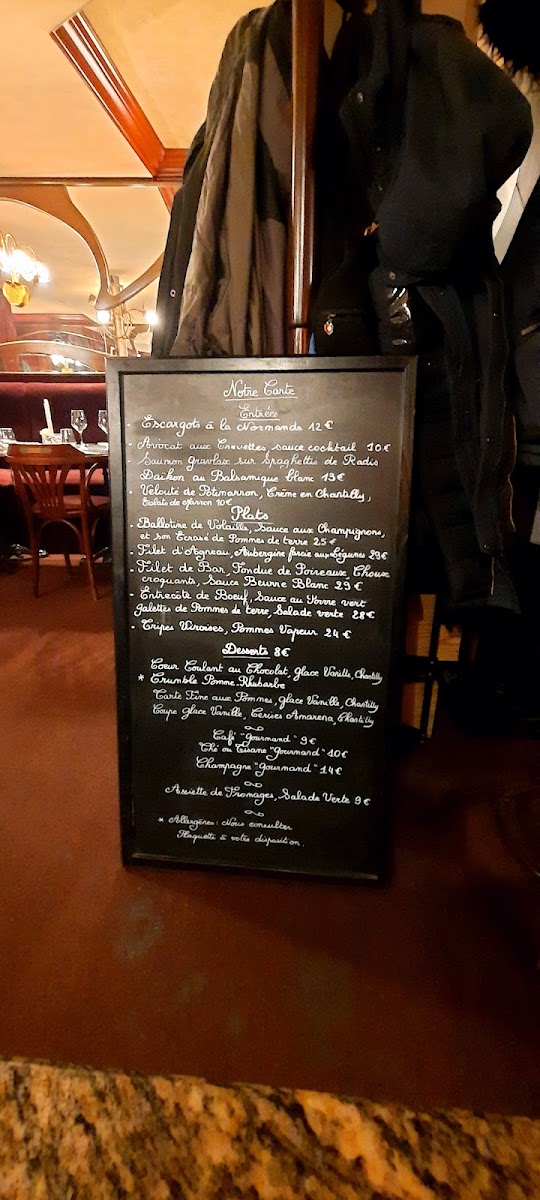 Notre Carte
Entrées
- Escargots à la Normande 12€
- Avocat aux Crevettes sauce cocktail 10€
- Saumon gravlax sur Spaghettis de Radis
Daikon au Balsamique blanc 13€
- Velouté de Potimarron, Crème en Chantilly,
Eclats de marron 10€
Plats
- Ballotine de Volaille, Sauce aux Champignons,
et son Ecrasé de Pommes de terre 25€
- Filet d'Agneau, Aubergine farcie aux Légumes 29€
- Filet de Bar, Fondue de Poireaux, Choux
croquants, Sauce Beurre Blanc 29€
- Entrecôte de Boeuf, Sauce au Poivre vert
Galettes de Pommes de terre, Salade verte 28€
- Tripes Viroises, Pommes Vapeur 24€
Desserts 8€
Coeur Coulant au Chocolat, glace Vanille, Chantilly
* Crumble Pomme-Rhubarbe
Tarte Fine aux Pommes, glace Vanille, Chantilly
Coupe glace Vanille, Cerises Amarena, Chantilly
Café "Gourmand" 9€
Thé ou Tisane "Gourmand" 10€
Champagne "Gourmand" 14€
Assiette de Fromages, Salade Verte 9€
* Allergènes: Nous consulter
Plaquette à votre disposition.